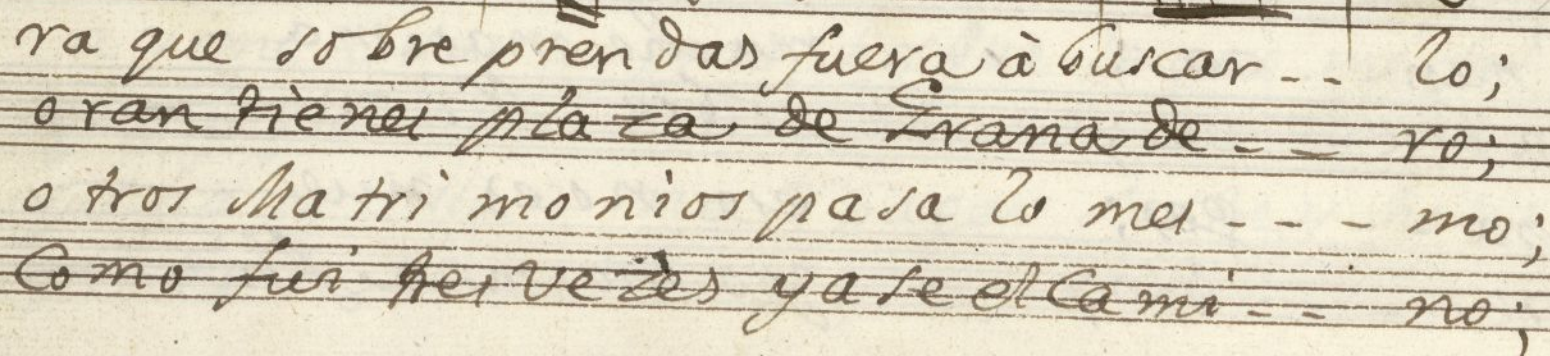 ra que sobre prendas fuera à buscar -- lo;
oran tienes plaza de Grana de -- ro;
otros Matri monios pasa lo mes --- mo;
Como fui tres vezès ya se el Cami -- no;